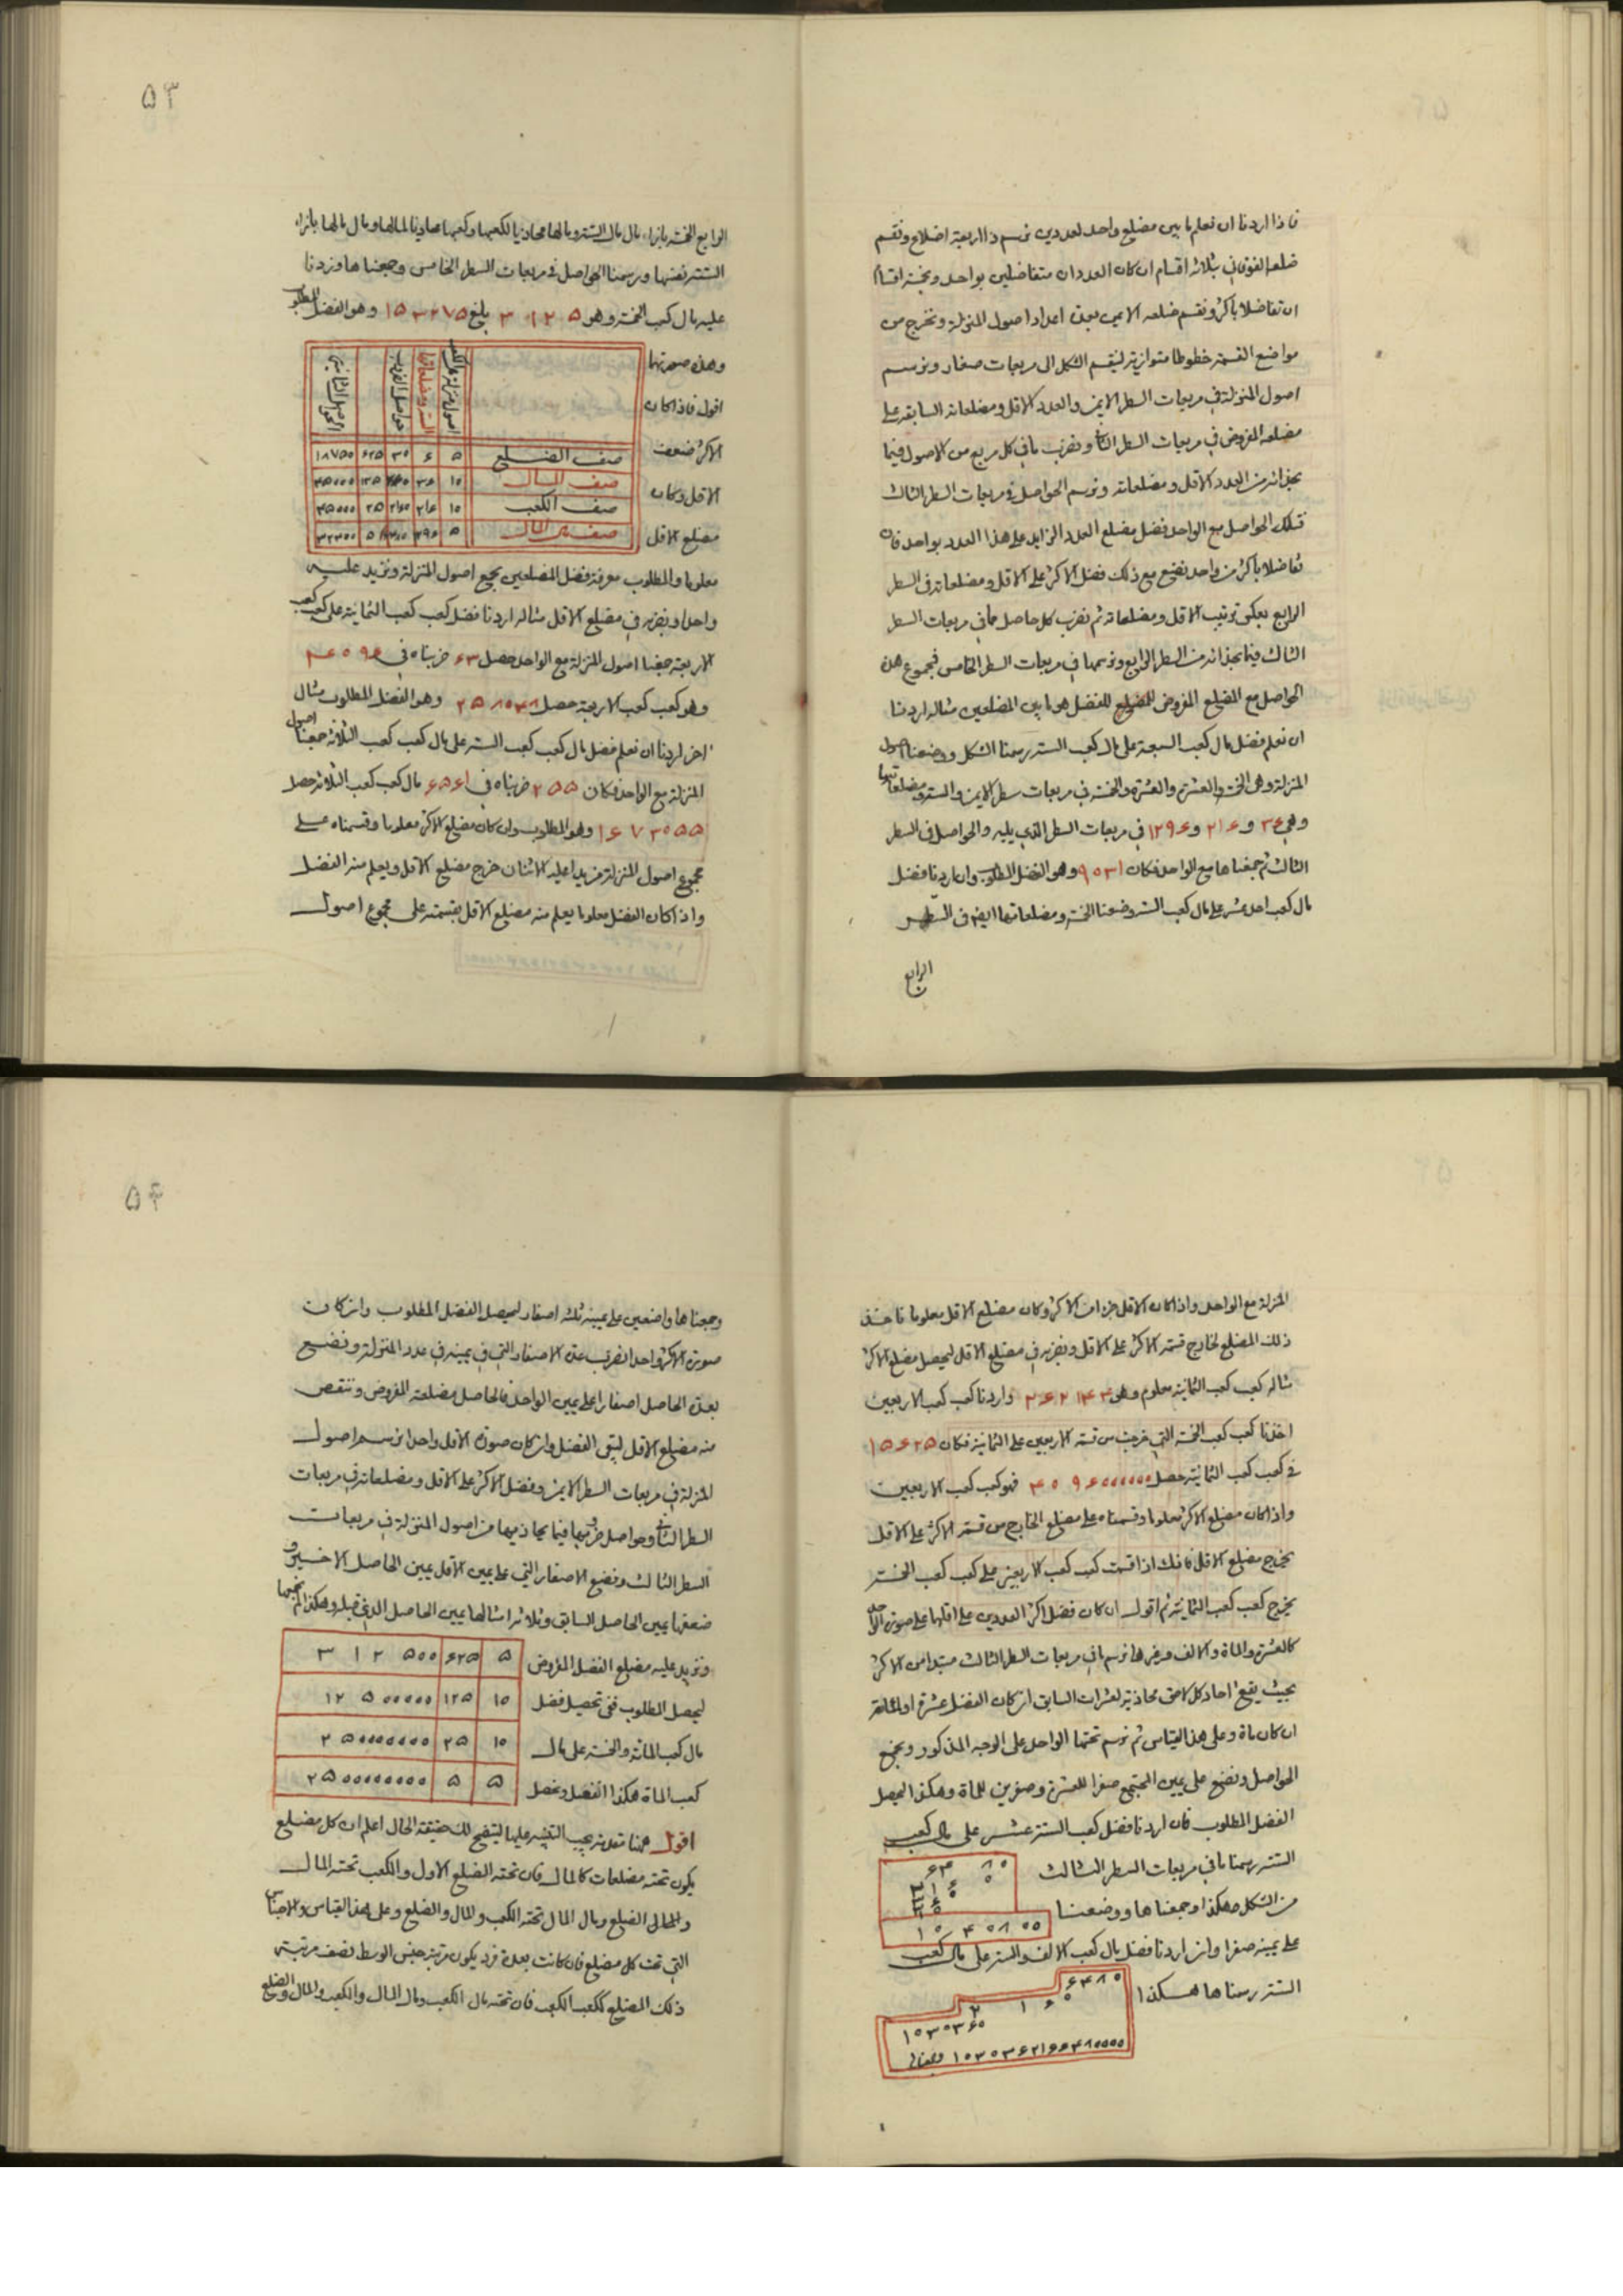 فاذا اردنا ان نعلم ما بين مضلع واحد لعددين نرسم ذا اربعة اضلاع ونقسم
ضلعه الفوقاني بثلاثة اقسام ان كان العددان متفاضلين بواحد وبخمسة اقسام
ان تفاضلا باكثر ونقسم ضلعه الايمن بعدة اعداد اصول المنزلة ونخرج من
مواضع القسمة خطوطا متوازية لينقسم الشكل الى مربعات صغار ونرسم
اصول المنزلة في مربعات السطر الايمن والعدد الاقل ومضلعاته السابقة على
مضلعه المفروض في مربعات السطر الثاني ونضرب ما في كل مربع من الاصول فيما
بحذائه من العدد الاقل ومضلعاته ونرسم الحواصل في مربعات السطر الثالث
فتلك الحواصل مع الواحد فضل مضلع العدد الزايد على هذا العدد بواحد فان
تفاضلا باكثر من واحد نضع مع ذلك فضل الاكثر على الاقل ومضلعاته في السطر
الرابع بعكس ترتيب الاقل ومضلعاته ثم نضرب كل حاصل مما في مربعات السطر
الثالث فيما بحذائه من السطر الرابع ونرسمها في مربعات السطر الخامس فمجموع هذه
الحواصل مع المضلع المفروض للفضل هو ما بين المضلعين مثاله اردنا
ان نعلم فضل مال كعب السبعة على مال كعب الستة رسمنا الشكل ووضعنا اصول
المنزلة وهي الخمسة والعشرة والعشرة والخمسة في مربعات سطر الايمن والستة ومضلعاتها
وهي ٣٦ و ٢١٦ و ١٢٩٦ في مربعات السطر الذي يليه والحواصل في السطر
الثالث ثم جمعناها مع الواحد فكان ٩٠٣١ وهو الفضل المطلوب وان اردنا فضل
مال كعب احد عشر على مال كعب الستة وضعنا الخمسة ومضلعاتها ايضا في السطر
الرابع
٥٣
الرابع الخمسة بازاء مال مال الستة ومالها محاذيا لكعبها وكعبها محاذيا لمالها ومال مالها بازاء
الستة نفسها ورسمنا الحواصل في مربعات السطر الخامس وجمعناها وزدنا
عليه مال كعب الخمسة وهو ٣١٢٥ بلغ ١٥٣٢٧٥ وهو الفضل المطلوب
وهذه صورتها
اقول فاذا كان
الاكثر ضعف
الاقل وكان
مضلع الاقل
صف الضلع ٥ ٦ ٣٠ ٦٢٥ ١٨٧٥٠
صف المال ١٠ ٣٦ ٣٦٠ ١٢٥ ٤٥٠٠٠
صف الكعب ١٠ ٢١٦ ٢١٦٠ ٢٥
صف مال المال ٥
معلوما والمطلوب معرفة فضل المضلعين نجمع اصول المنزلة ونزيد عليه
واحدا ونضربه في مضلع الاقل مثاله اردنا فضل كعب كعب الثمانية على كعب كعب
الاربعة جمعنا اصول المنزلة مع الواحد حصل ٦٣ ضربناه في ٤٠٩٦
وهو كعب كعب الاربعة حصل ٢٥٨٠٤٨ وهو الفضل المطلوب مثال
اخر اردنا ان نعلم فضل مال كعب كعب الستة على مال كعب كعب الثلاثة جمعنا اصول
المنزلة مع الواحد فكان ٢٥٥ ضربناه في ٦٥٦١ مال كعب كعب الثلاثة حصل
١٦٧٣٠٥٥ وهو المطلوب وان كان مضلع الاكثر معلوما وقسمناه على
مجموع اصول المنزلة مزيدا عليه الاثنان خرج مضلع الاقل ويعلم منه الفضل
واذا كان الفضل معلوما يعلم منه مضلع الاقل بقسمته على مجموع اصول
المنزلة مع الواحد واذا كان الاقل جزءا من الاكثر وكان مضلع الاقل معلوما فاخذ
ذلك المضلع لخارج قسمة الاكثر على الاقل ونضربه في مضلع الاقل ليحصل مضلع الاكثر
مثاله كعب كعب الثمانية معلوم وهو ٢٦٢١٤٤ واردنا كعب كعب الاربعين
اخذنا كعب كعب الخمسة التي خرجت من قسمة الاربعين على الثمانية فكان ١٥٦٢٥
في كعب كعب الثمانية حصل ٤٠٩٦٠٠٠٠٠٠ فهو كعب كعب الاربعين
واذا كان مضلع الاكثر معلوما وقسمناه على مضلع الخارج من قسمة الاكثر على الاقل
يخرج مضلع الاقل فانك اذا قسمت كعب كعب الاربعين على كعب كعب الخمسة
يخرج كعب كعب الثمانية ثم اقول ان كان فضل اكثر العددين على اقلهما على صورة الواحد
كالعشرة والمائة والالف وغيرها نرسم ما في مربعات السطر الثالث مبتدأ من الاكثر
بحيث يقع احاد كل لاحق محاذية لعشرات السابق ان كان الفضل عشرة او لمائة
ان كان مائة وعلى هذا القياس ثم نرسم تحتها الواحد على الوجه المذكور ونجمع
الحواصل ونضع على يمين المجتمع صفرا للعشرة وصفرين للمائة وهكذا ليحصل
الفضل المطلوب فان اردنا فضل كعب الستة عشر على مال كعب
الستة رسمنا ما في مربعات السطر الثالث
من الشكل هكذا وجمعناها ووضعنا
على يمينه صفرا وان اردنا فضل مال كعب الالف والستة على مال كعب
الستة رسمناها هكذا
٥٤
وجمعناها واضعين على يمينه ثلثة اصفار ليحصل الفضل المطلوب وان كان
صورة الاكثر واحدا نضرب عدة الاصفار التي في يمينه في عدد المنزلة ونضع
بعدة الحاصل اصفارا على يمين الواحد فالحاصل مضلعه المفروض وننقص
منه مضلع الاقل ليبقى الفضل وان كان صورة الاقل واحدا نرسم اصول
المنزلة في مربعات السطر الايمن وفضل الاكثر على الاقل ومضلعاته في مربعات
السطر الثاني وحواصل ضربها فيما يحاذيها من اصول المنزلة في مربعات
السطر الثالث ونضع الاصفار التي على يمين الاقل يمين الحاصل الاخير و
ضعفها يمين الحاصل السابق وثلاثة امثالها يمين الحاصل الذي قبله وهكذا ثم نجمعها
ونزيد عليه مضلع الفضل المفروض
ليحصل المطلوب ففي تحصيل فضل
مال كعب المائة والخمسة على مال
كعب المائة هكذا
٥ ٦٢٥ ٣١٢٥٠٠
١٠ ١٢٥ ١٢٥٠٠٠٠٠
١٠ ٢٥ ٢٥٠٠٠٠٠٠٠
٥ ٥ ٢٥٠٠٠٠٠٠٠٠
اقول ههنا مقدمة يجب التنبيه عليها ليتضح لك حقيقة الحال اعلم ان كل مضلع
يكون تحته مضلعات كالمال فان تحته الضلع الاول والكعب تحته المال
والضلع ومال المال تحته الكعب والمال والضلع وعلى هذا القياس والاجناس
التي تحت كل مضلع فان كانت بعدة فرد يكون مرتبة جنس الوسط نصف مرتبة
ذلك المضلع ككعب الكعب فان تحته مال الكعب ومال المال والكعب والمال والضلع